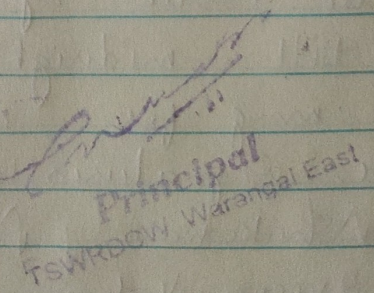 Principal
TSWRDCW Warangal East